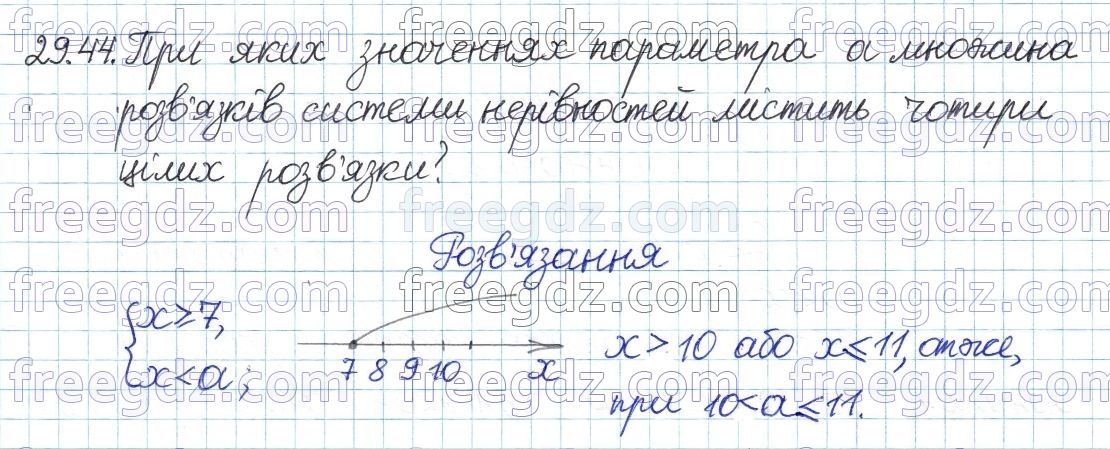 29.44. При яких значеннях параметра а множина
розв'язків системи нерівностей містить чотири
цілих розв'язки?
Розв'язання
{x ≥ 7,
{x < a;
7 8 9 10 x
x > 10 або x ≤ 11, отже,
при 10 < a ≤ 11.
freegdz.com freegdz.com freegdz.com
freegdz.com freegdz.com freegdz.com
freegdz.com freegdz.com freegdz.com
freegdz.com freegdz.com freegdz.com
freegdz.com freegdz.com freegdz.com